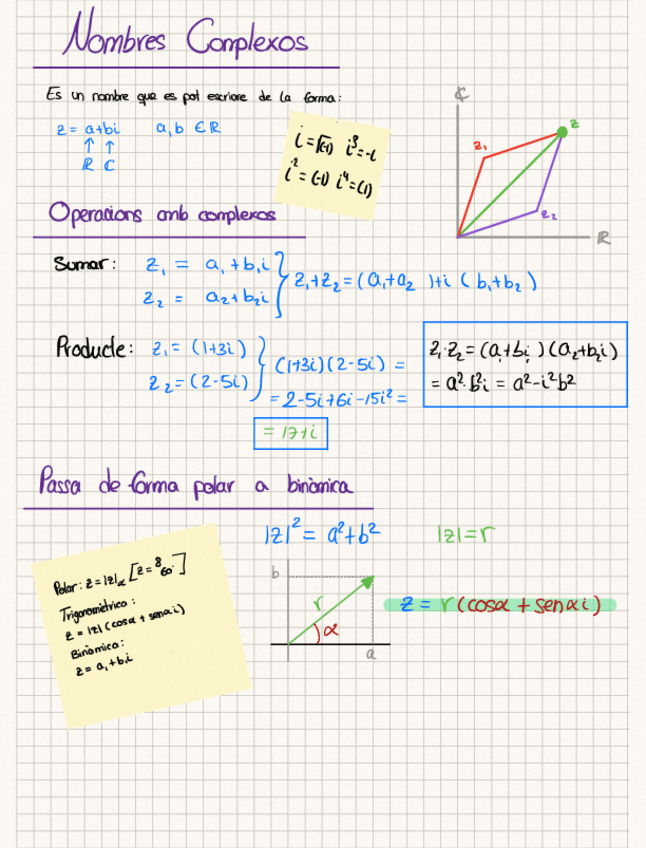 Nombres Complexos
Es un nombre que es pot escriure de la forma:
z = a+bi a,b ∈ ℝ
↑ ↑
ℝ ℂ
i=√(-1) i³=-i
i²=(-1) i⁴=(1)
ℂ
z
z₁
z₂
ℝ
Operacions amb complexos
Sumar: z₁ = a₁+b₁i
z₂ = a₂+b₂i
z₁+z₂=(a₁+a₂)+i(b₁+b₂)
Producte: z₁=(1+3i)
z₂=(2-5i)
(1+3i)(2-5i) =
= 2-5i+6i-15i² =
= 17+i
z₁·z₂=(a₁+b₁i)(a₂+b₂i)
= a²·b²i = a²-i²b²
Passa de forma polar a binòmica
|z|² = a²+b² |z|=r
Polar: z=|z|α [z=8 60°]
Trigonomètrica:
z=|z|(cosα + senαi)
Binòmica:
z=a₁+b₁i
b
r
α
a
z = r(cosα + senαi)